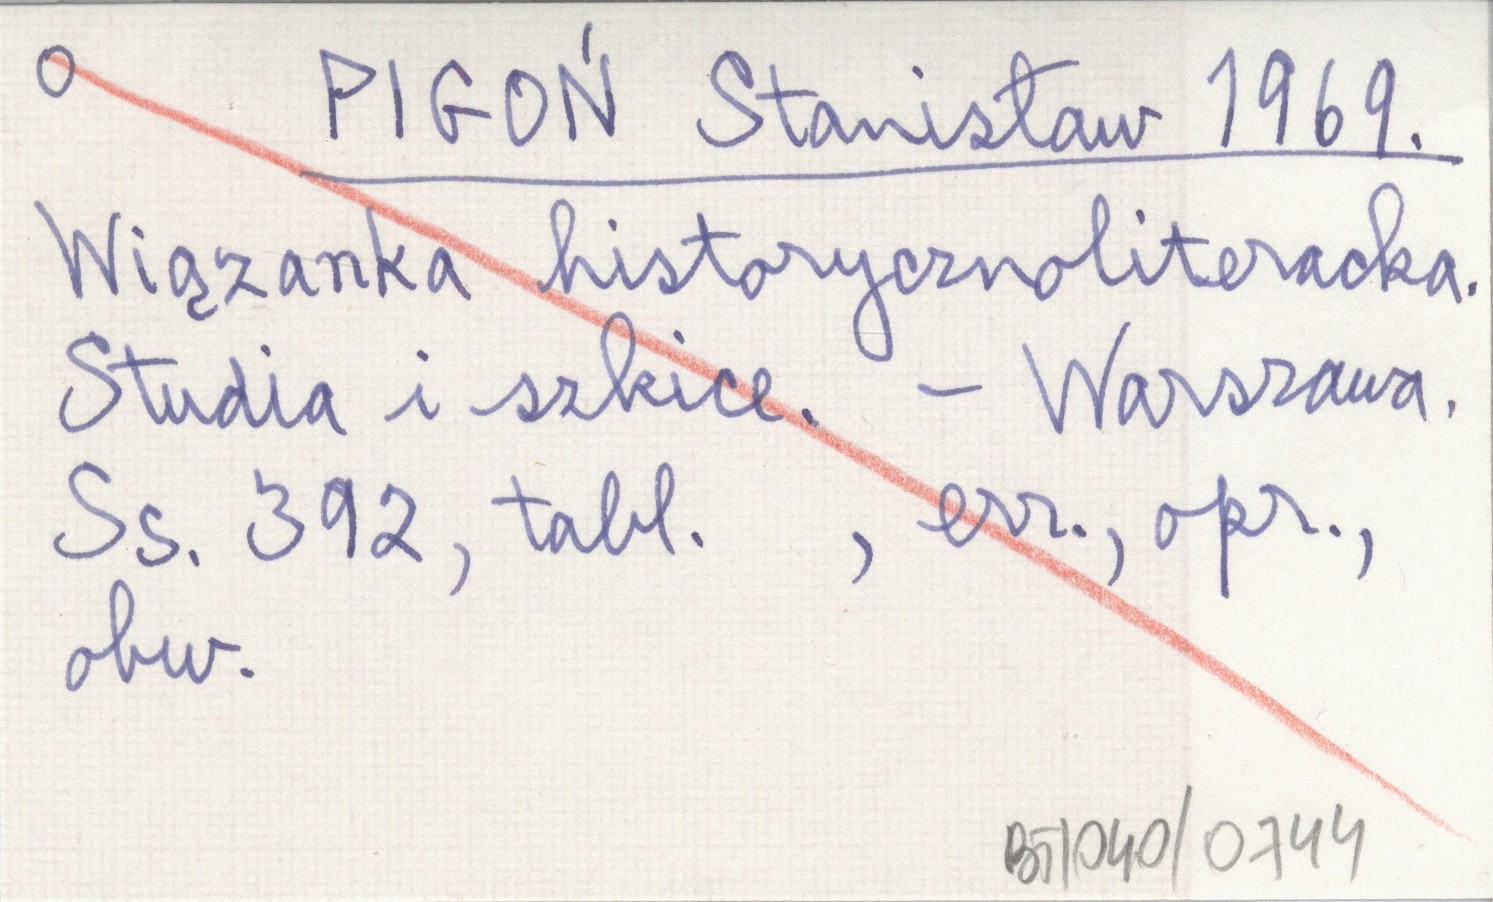 O PIGOŃ Stanisław 1969.
Wiązanka historycznoliteracka.
Studia i szkice. – Warszawa.
Ss. 392, tabl. , err., opr.,
obw.
BJ/040/0744